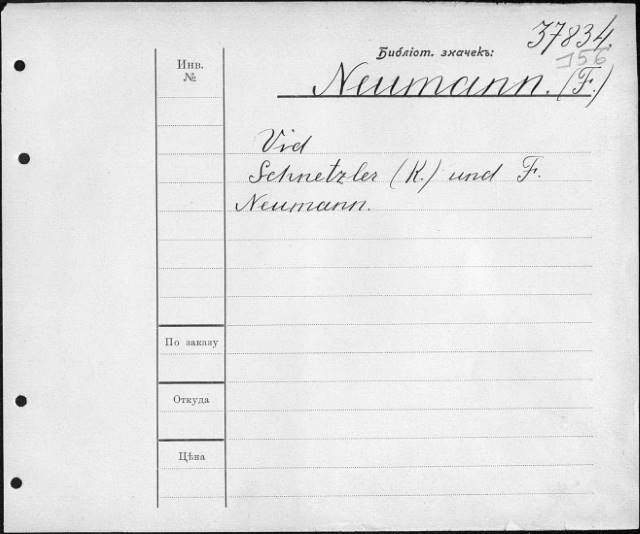 37834.
Библіот. значекъ:
156
Инв.
№
Neumann. (F.)
Vid
Schnetzler (K.) und F.
Neumann.
По заказу
Откуда
Цѣна